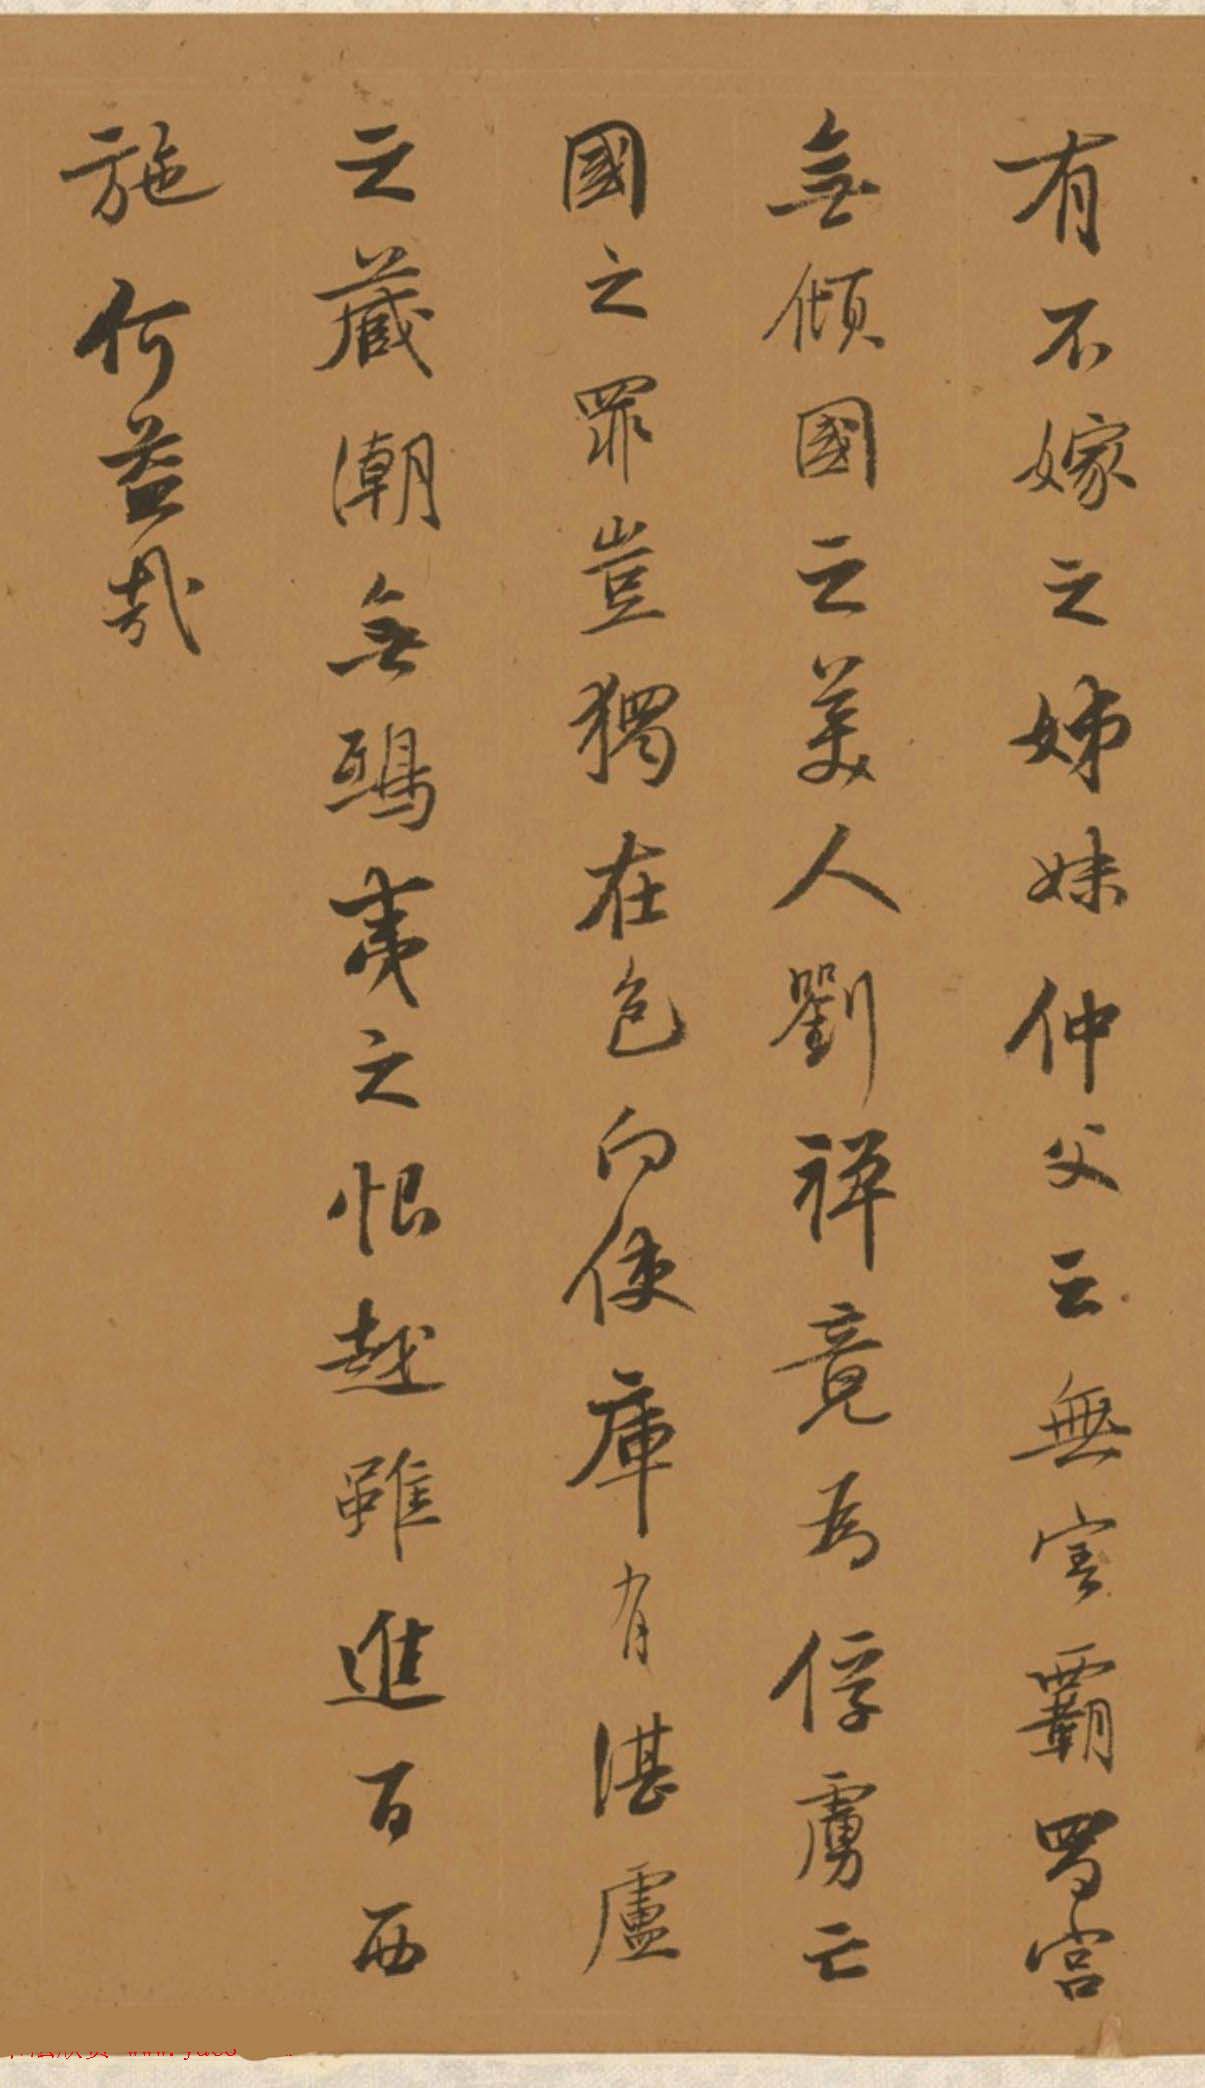 有不嫁之姊妹仲父云無害霸蜀宮
無傾國之美人劉禅竟為俘虜亡
國之罪豈獨在色向使庫有湛盧
之藏潮無鴟夷之恨越雖進百西
施何益哉